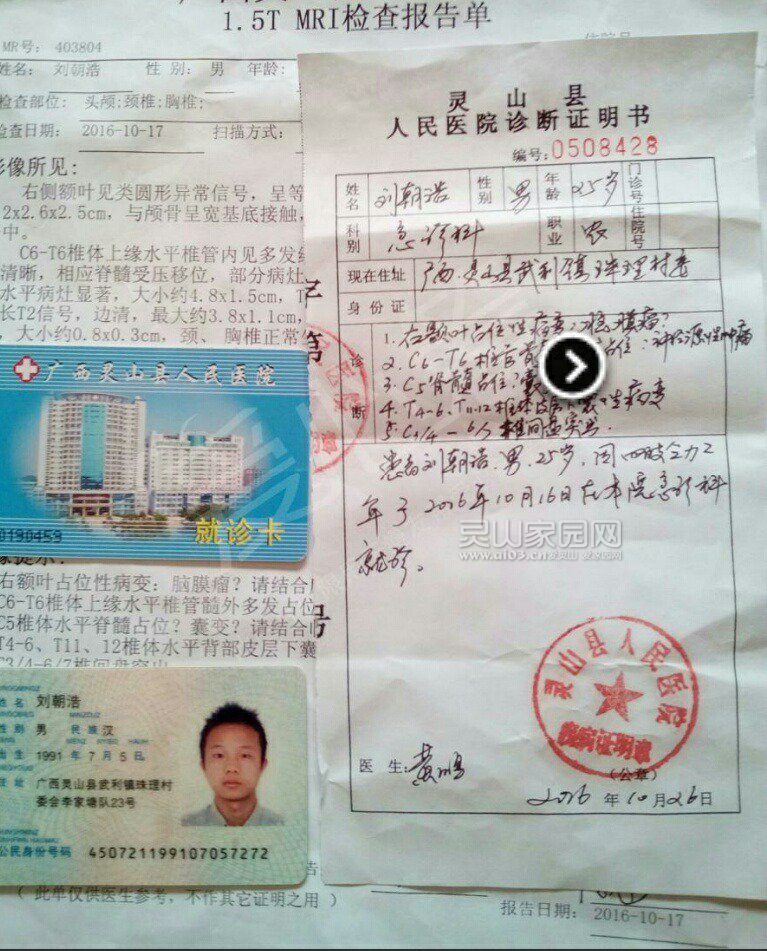 1.5T MRI检查报告单
MR号: 403804
姓名: 刘朝浩 性 别: 男 年龄:
检查部位: 头颅;颈椎;胸椎;
检查日期: 2016-10-17 扫描方式:
影像所见:
右侧额叶见类圆形异常信号，呈等
2x2.6x2.5cm，与颅骨呈宽基底接触，
中。
C6-T6椎体上缘水平椎管内见多发结
清晰，相应脊髓受压移位，部分病灶
水平病灶显著，大小约4.8x1.5cm，T
长T2信号，边清，最大约3.8x1.1cm，
，大小约0.8x0.3cm，颈、胸椎正常
广西灵山县人民医院
0190459
就诊卡
右额叶占位性病变：脑膜瘤？请结合
C6-T6椎体上缘水平椎管髓外多发占位
C5椎体水平脊髓占位？囊变？请结合
T4-6、T11、12椎体水平背部皮层下囊
C3/4-6/7椎间盘突出
姓 名 刘朝浩
性 别 男 民 族 汉
出 生 1991 年 7 月 5 日
住 址 广西灵山县武利镇珠理村
委会李家塘队23号
公民身份号码 450721199107057272
( 此单仅供医生参考，不作其它证明之用 )
报告日期: 2016-10-17
灵山县
人民医院诊断证明书
编号:0508428
姓名 刘朝浩 性别 男 年龄 25岁 门诊号
科别 急诊科 职业 农 住院号
现在住址 广西灵山县武利镇珠理村委
身份证
诊断
1. 右额叶占位性病变：脑膜瘤？
2. C6-T6椎管 占位：神经源性肿瘤
3. C5脊髓占位？囊
4. T4-6、T11.12椎体 皮层下囊性病变
5. C3/4-6/7椎间盘突出
患者刘朝浩、男、25岁，因四肢乏力2
年于2016年10月16日在本院急诊科
就诊。
灵山家园网
www.u103.cn
灵山县人民医院
疾病证明章
医 生:
(公章)
2016 年 10 月 26 日